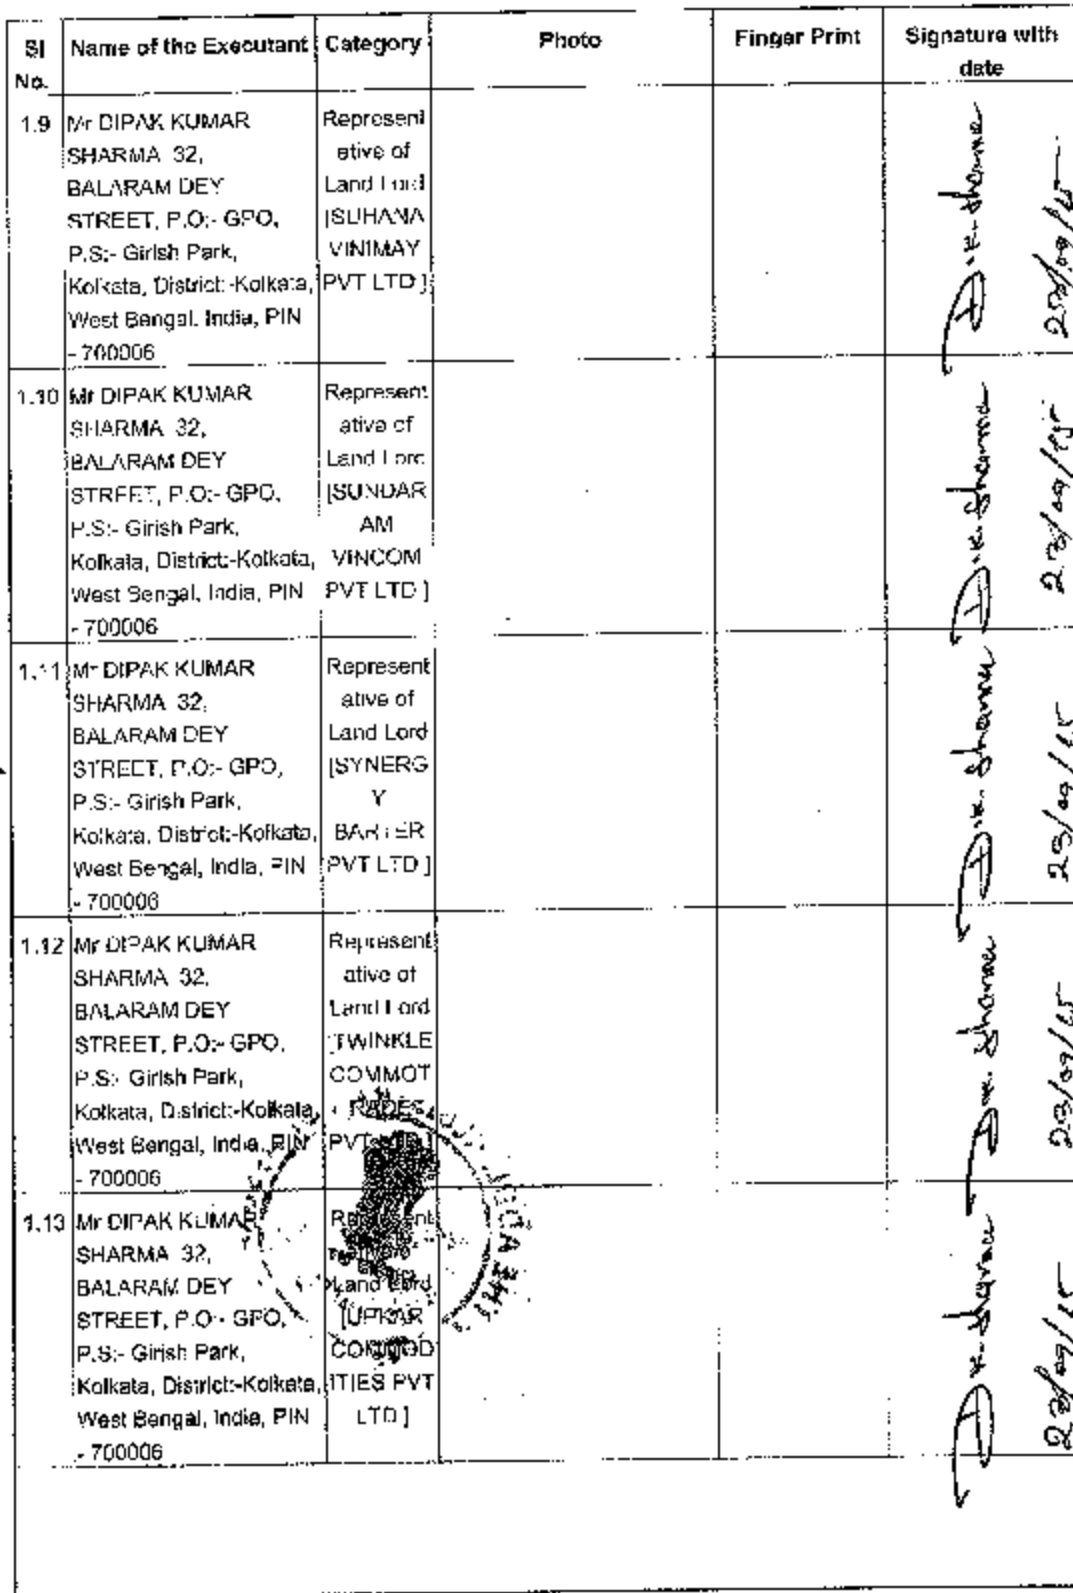 Sl No. Name of the Executant Category Photo Finger Print Signature with date
1.9 Mr DIPAK KUMAR
SHARMA 32,
BALARAM DEY
STREET, P.O:- GPO,
P.S:- Girish Park,
Kolkata, District:-Kolkata,
West Bengal, India, PIN
- 700006
Represent
ative of
Land Lord
[SUHANA
VINIMAY
PVT LTD ]
D.K. Sharma
23/09/15
1.10 Mr DIPAK KUMAR
SHARMA 32,
BALARAM DEY
STREET, P.O:- GPO,
P.S:- Girish Park,
Kolkata, District:-Kolkata,
West Bengal, India, PIN
- 700006
Represent
ative of
Land Lord
[SUNDAR
AM
VINCOM
PVT LTD ]
D.K. Sharma
23/09/15
1.11 Mr DIPAK KUMAR
SHARMA 32,
BALARAM DEY
STREET, P.O:- GPO,
P.S:- Girish Park,
Kolkata, District:-Kolkata,
West Bengal, India, PIN
- 700006
Represent
ative of
Land Lord
[SYNERG
Y
BARTER
PVT LTD ]
D.K. Sharma
23/09/15
1.12 Mr DIPAK KUMAR
SHARMA 32,
BALARAM DEY
STREET, P.O:- GPO,
P.S:- Girish Park,
Kolkata, District:-Kolkata,
West Bengal, India, PIN
- 700006
Represent
ative of
Land Lord
[TWINKLE
COMMOT
RADES
PVT LTD ]
D.K. Sharma
23/09/15
1.13 Mr DIPAK KUMAR
SHARMA 32,
BALARAM DEY
STREET, P.O:- GPO,
P.S:- Girish Park,
Kolkata, District:-Kolkata,
West Bengal, India, PIN
- 700006
Represent
ative of
Land Lord
[UPKAR
COMMOD
ITIES PVT
LTD ]
D.K. Sharma
23/09/15